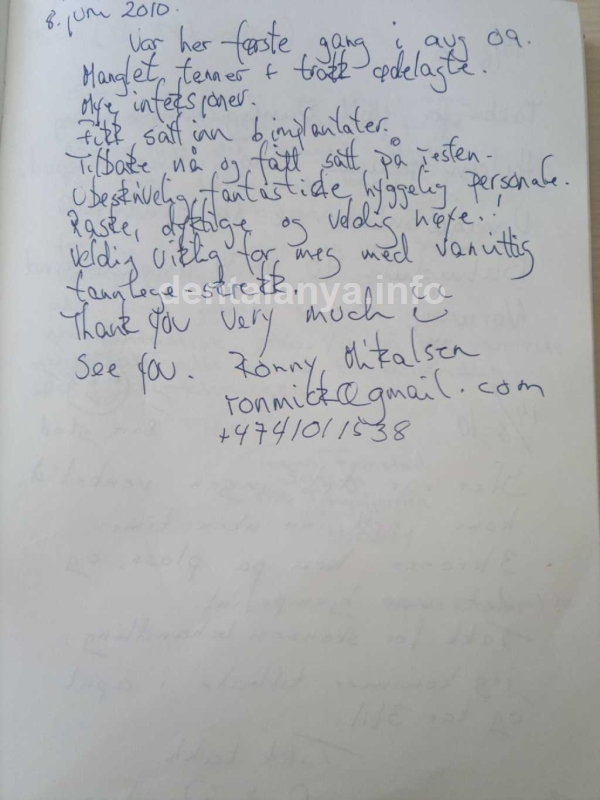 8. juni 2010.
Var her første gang i aug 09.
Manglet tenner + trakk ødelagte.
Mye infeksjoner.
Fikk satt inn 6 implantater.
Tilbake nå og fått satt på resten.
Ubeskrivelig fantastiske, hyggelig personale.
Raske, dyktige og veldig
Veldig viktig for meg med vanvittig
tannlegeskrekk.
dentalanya.info
Thank you very much
See you. Ronny Mikalsen
ronmick@gmail.com
+4741011538